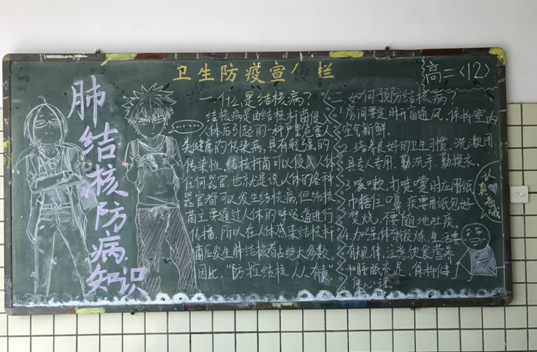 卫生防疫宣传栏
高二<12>
肺结核防病知识
一、什么是结核病?
结核病是由结核杆菌侵
人体后引起的一种严重危害人
类健康的传染病,具有较强的
传染性。结核杆菌可以侵入人体
任何器官,也就是说人体的各种
器官都可以发生结核病,但结核
菌主要通过人体的呼吸道进行
传播,所以在人体感染结核杆
菌后发生肺结核者占绝大多数。
因此,"防痨结核,人人有责
二、如何预防结核病?
1.房间要定时开窗通风,保持室内
空气新鲜。
2.培养良好的卫生习惯,洗漱用
具专人专用,勤洗手、勤换衣。
3.咳嗽、打喷嚏时应用纸
巾捂口鼻,痰要用纸包好
焚烧,不随地吐痰。
4.加强体育锻炼,生活要
有规律,注意饮食营养
和睡眠充足,保持健
康心理。